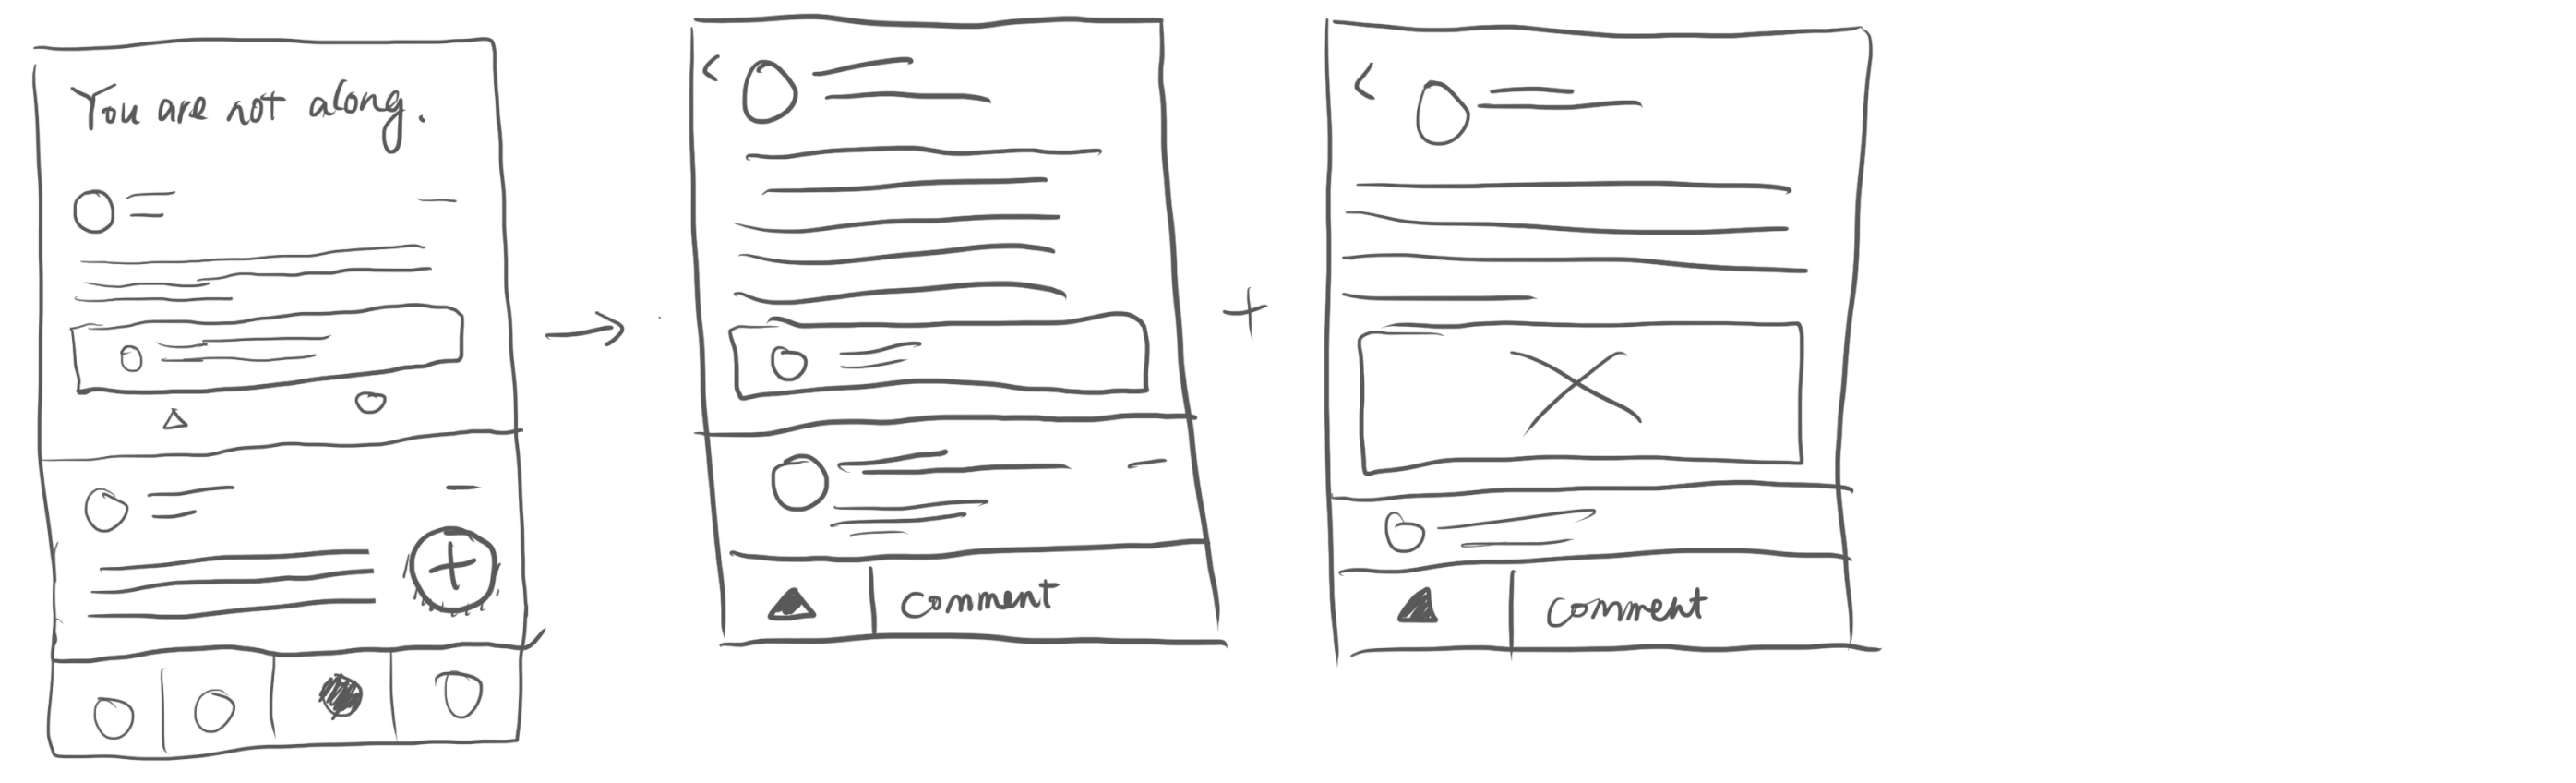 You are not along.
comment
comment